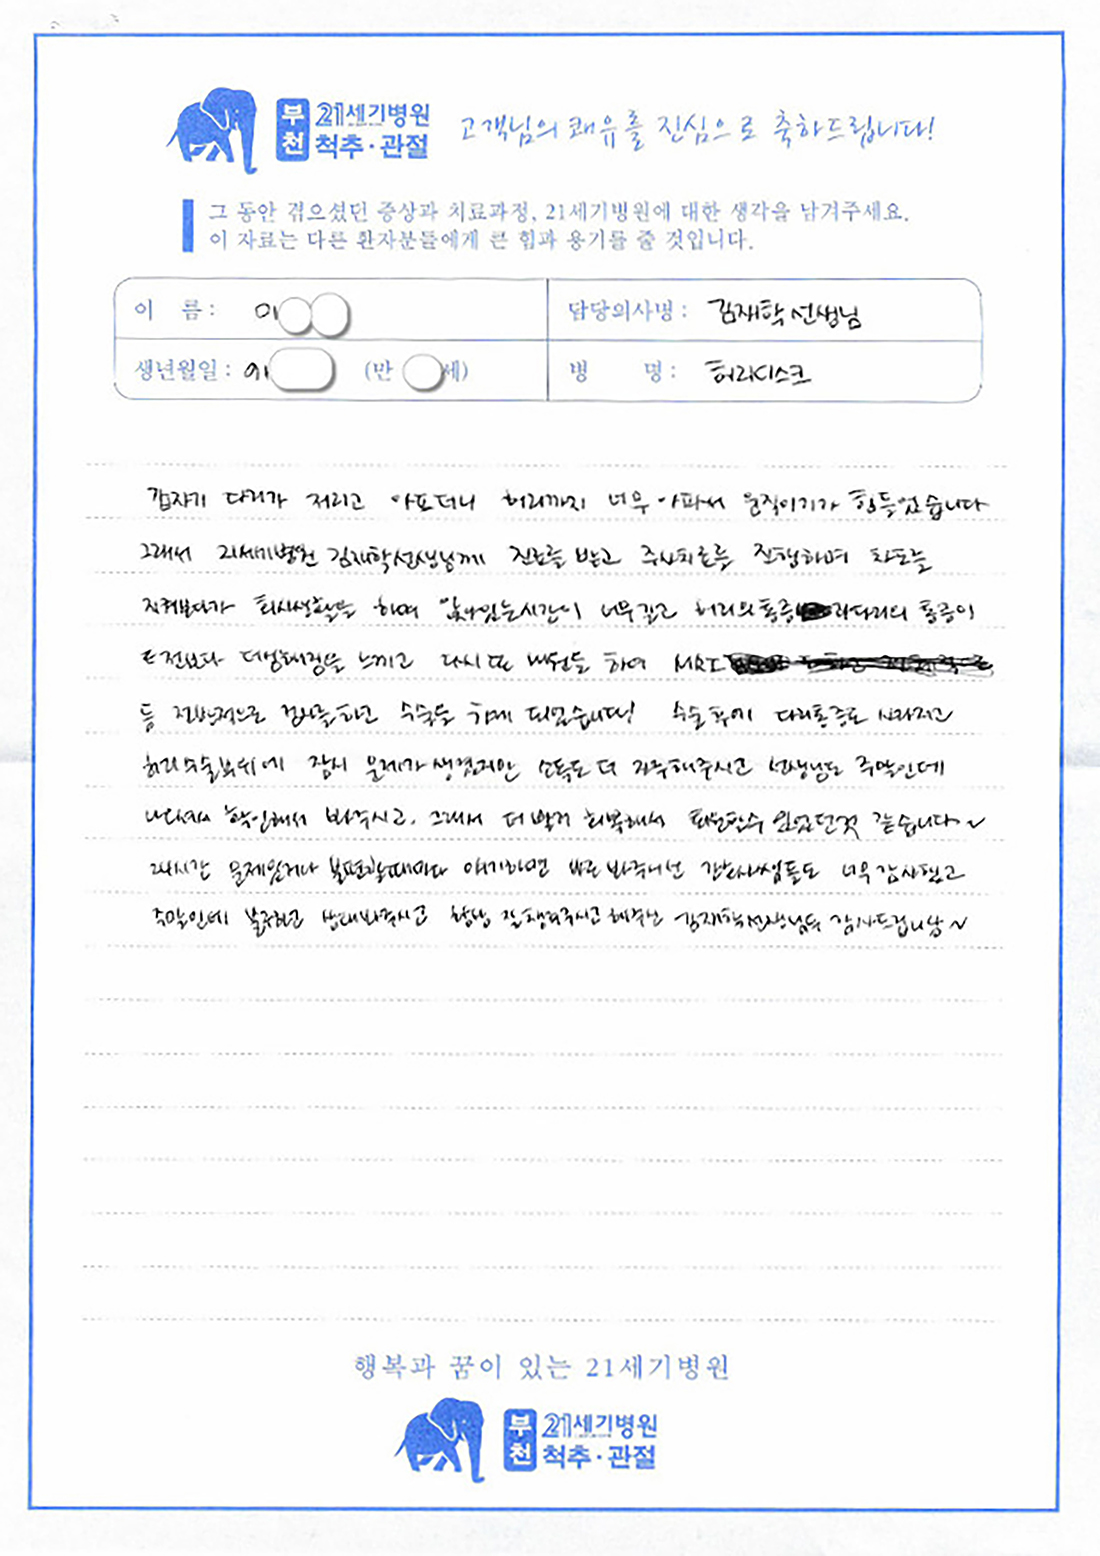 부천 21세기병원 척추·관절
고객님의 쾌유를 진심으로 축하드립니다!
그 동안 겪으셨던 증상과 치료과정, 21세기병원에 대한 생각을 남겨주세요.
이 자료는 다른 환자분들에게 큰 힘과 용기를 줄 것입니다.
이 름 : 이
담당의사명 : 김재학 선생님
생년월일 : 91 (만 세)
병 명 : 허리디스크
갑자기 다리가 저리고 아프더니 허리까지 너무 아파서 움직이기가 힘들었습니다
그래서 21세기병원 김재학선생님께 진료를 받고 주사치료를 진행하며 차도를
지켜보다가 회사생활을 하며 앉아있는시간이 너무길고 허리의통증 과다리의 통증이
전보다 더심해짐을 느끼고 다시 또 내원을 하여 MRI
등 전반적으로 검사를하고 수술을 하게 되었습니다! 수술 후에 다리통증도 사라지고
허리수술부위에 잠시 문제가생겼지만 소독도 더 자주해주시고 선생님도 주말인데
확인해서 봐주시고, 그래서 더 빨리 회복해서 퇴원할수 있었던것 같습니다~
24시간 문제있거나 불편할때마다 얘기하면 바로 봐주시던 간호사쌤들도 너무감사했고
주말인데 불구하고 상태봐주시고 항상 잘 챙겨주시고 해주신 김재학선생님두 감사드립니당~
행복과 꿈이 있는 21세기병원
부천 21세기병원 척추·관절